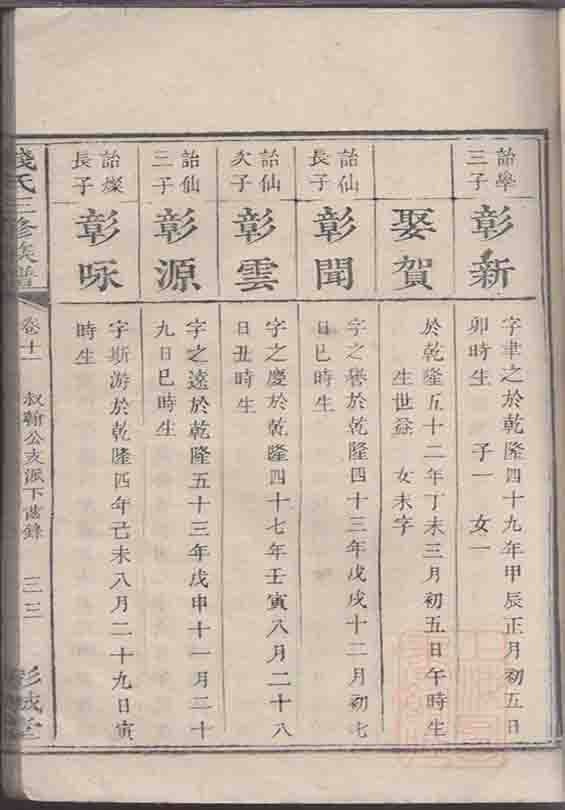 詒學
三子
彰新
字聿之於乾隆四十九年甲辰正月初五日
卯時生　子一　女一
娶賀
於乾隆五十二年丁未三月初五日午時生
生世益　女未字
詒仙
長子
彰聞
字之譽於乾隆四十三年戊戌十二月初七
日巳時生
詒仙
次子
彰雲
字之慶於乾隆四十七年壬寅八月二十八
日丑時生
詒仙
三子
彰源
字之遠於乾隆五十三年戊申十一月二十
九日巳時生
詒燦
長子
彰咏
字斯游於乾隆四年己未八月二十九日寅
時生
錢氏三修族譜
卷十一
叔 公 派下齒錄
三三
彭城堂